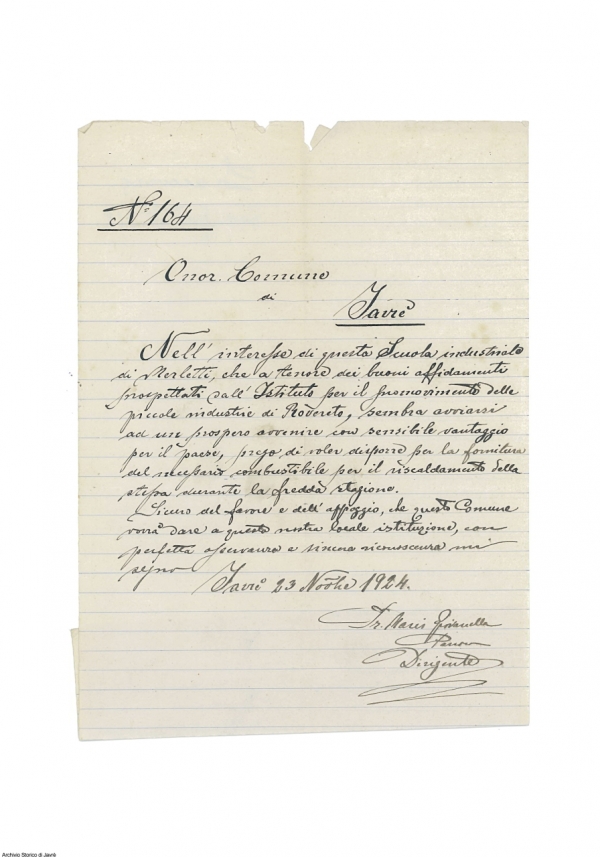 Nº 164
Onor. Comune
di
Javrè
Nell' interesse di questa Scuola industriale
di Merletti, che a tenore dei buoni affidamenti
prospettati dall' Istituto per il promovimento delle
piccole industrie di Rovereto, sembra avviarsi
ad un prospero avvenire con sensibile vantaggio
per il paese, prego di voler disporre per la fornitura
del necessario combustibile per il riscaldamento della
stessa durante la fredda stagione.
Sicuro del favore e dell' appoggio, che questo Comune
vorrà dare a questa nostra locale istituzione, con
perfetta osservanza e sincera riconoscenza mi
segno
Javrè 23 Nobre 1924.
Dirigente
Archivio Storico di Javrè